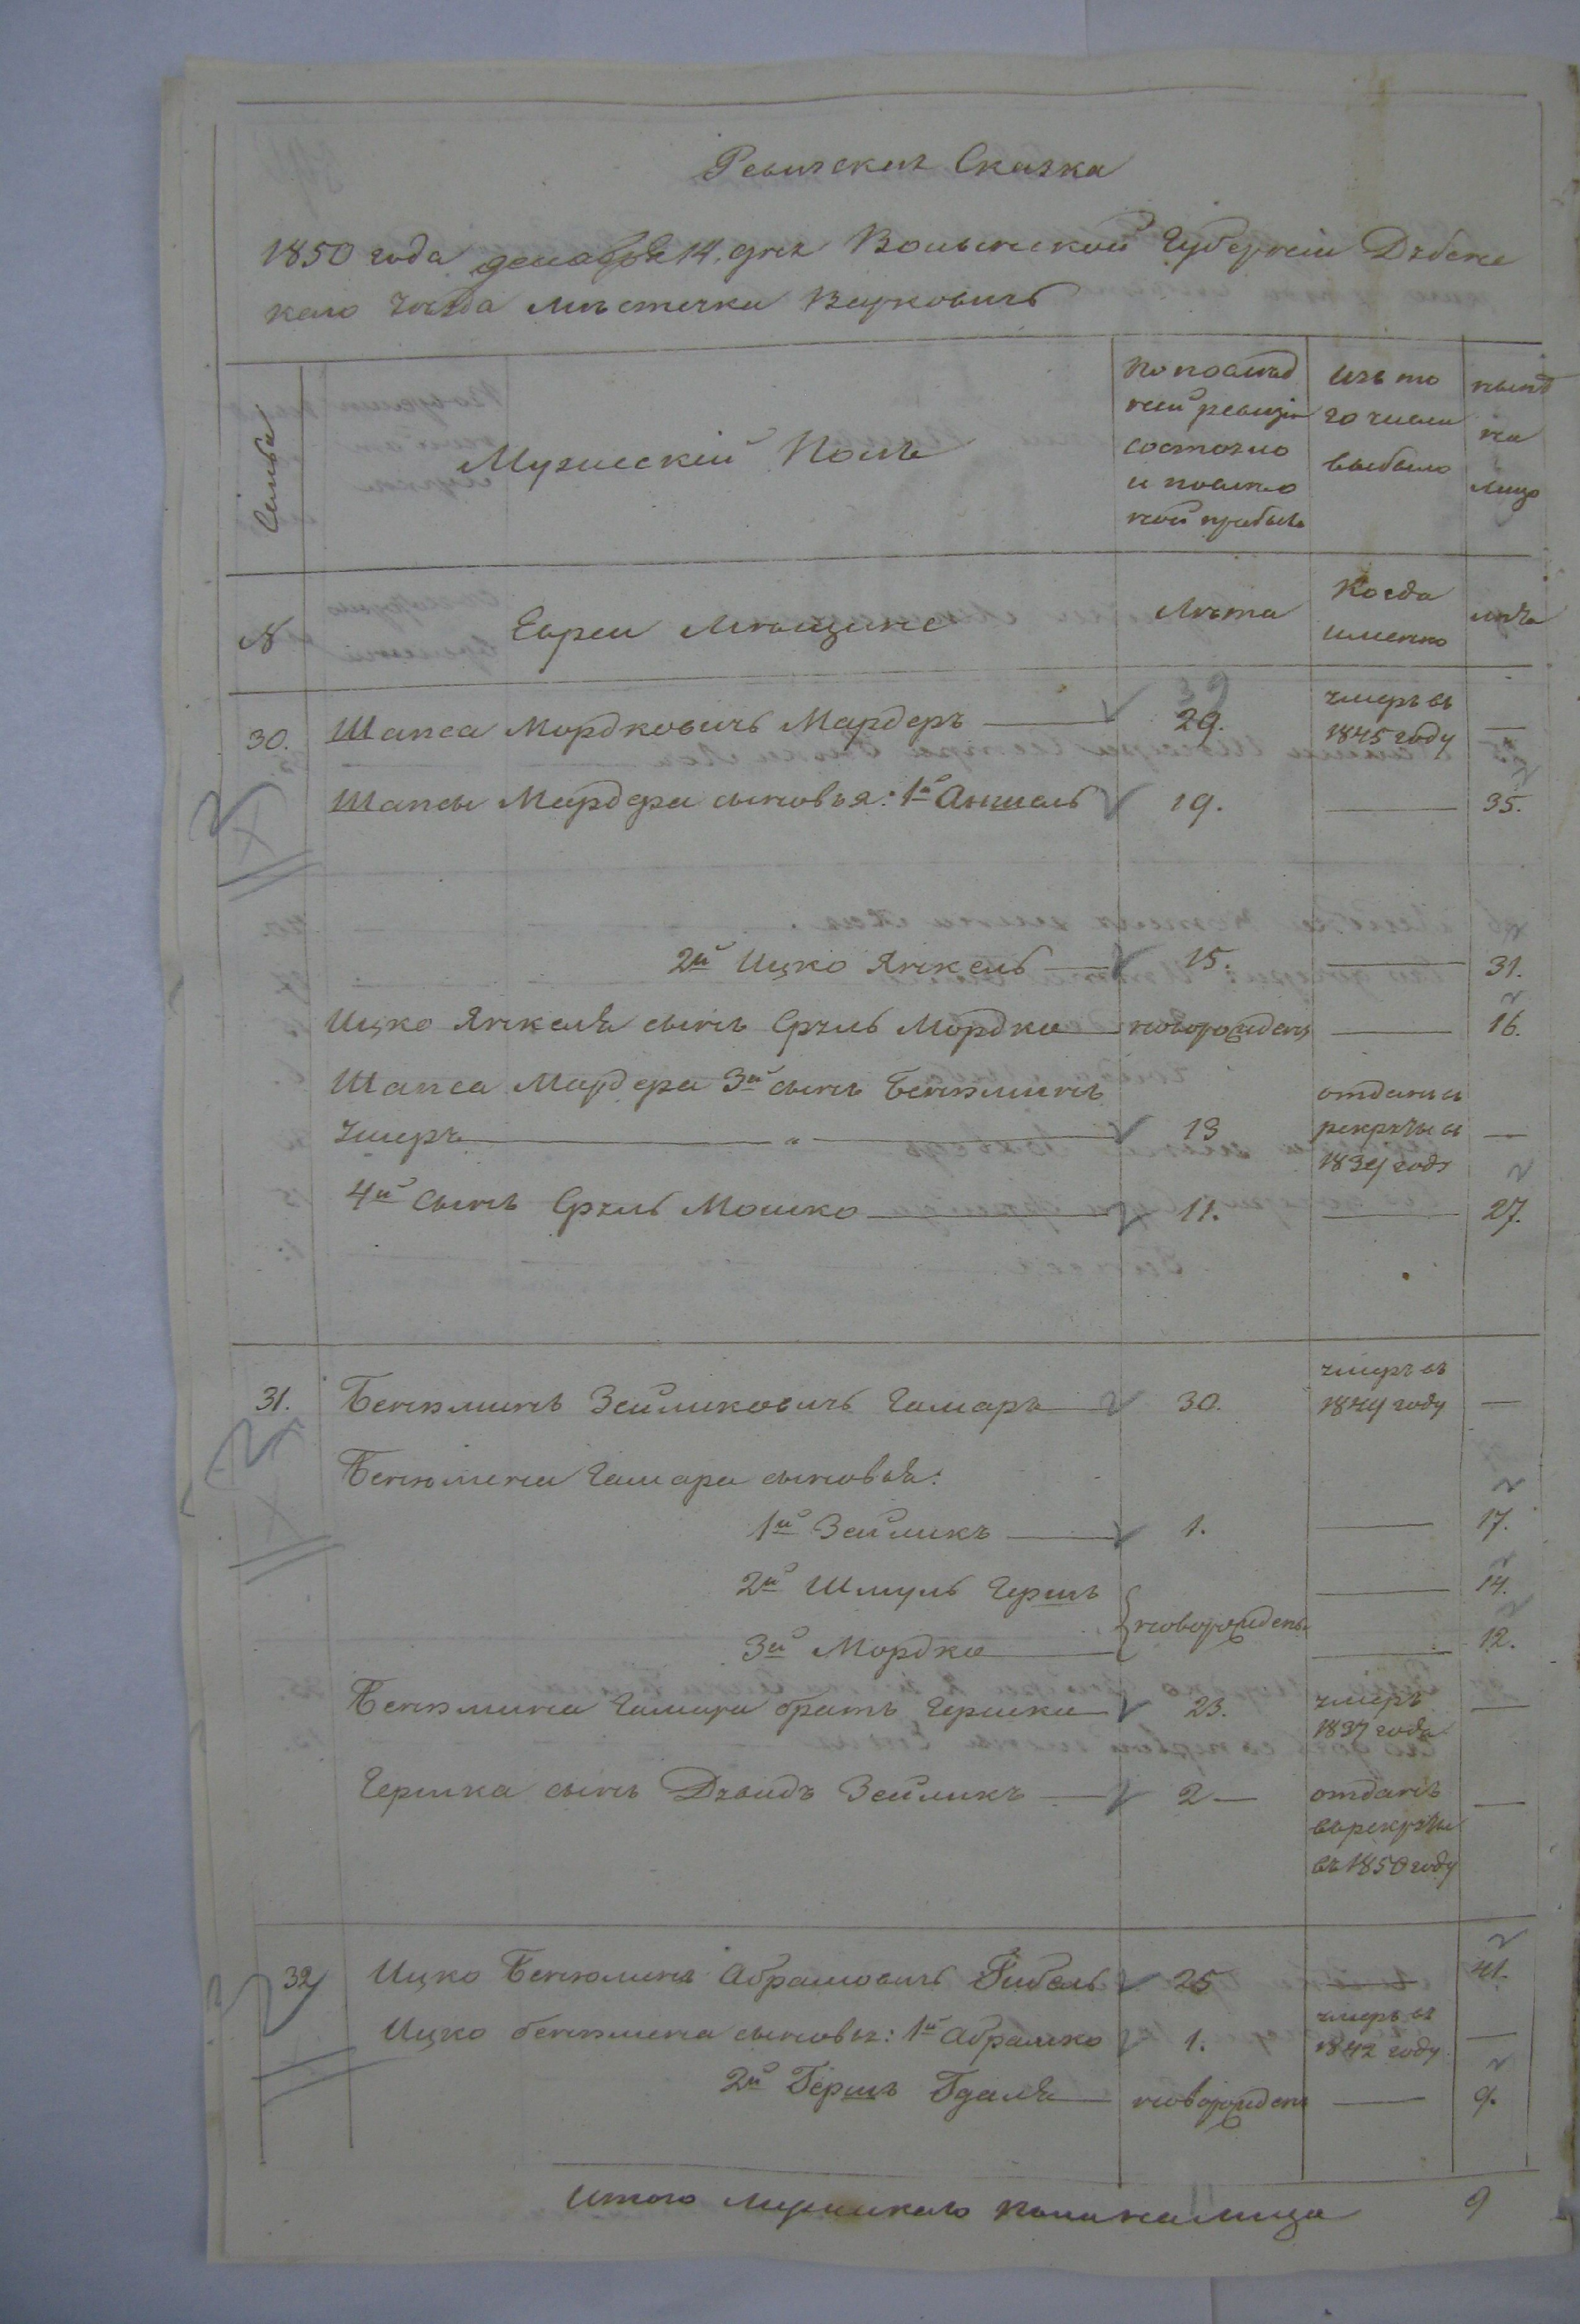 Ревизская Сказка
1850 года декабря 14. дня Волынской Губернiи Дубенс
каго Уѣзда мѣстечка Варковичь
Семьи
Мужескiй Полъ
По послѣд
ней ревизiи
состояло
и послѣ о
ной прибыло
Изъ то
го числа
выбыло
нынѣ
на
лицо
N
Евреи Мѣщане
Лѣта
Когда
именно
лѣта
30. Шапса Мордковичь Мардеръ 29. умеръ въ
1845 году —
Шапсы Мардера сыновья: 1й Аншель 19. — 35.
2й Ицко Янкель 15. — 31.
Ицко Янкеля сынъ Сруль Мордко новорожденъ — 16.
Шапса Мардера 3й сынъ Бенюминъ
умеръ " 13 отданъ въ
рекруты въ —
1834 году
4й сынъ Сруль Мошко 11. — 27.
31. Бенюминъ Зейликовичь Гамаръ 30. умеръ въ
1844 году —
Бенюмина Гамара сыновья:
1й Зейликъ 1. — 17.
2й Шмуль Гершъ — 14.
новорожденъ
3й Мордко — 12.
Бенюмина Гамара братъ Гершко 23. умеръ —
1837 года
Гершка сынъ Дувидъ Зейликъ 2 — отданъ —
въ рекруты
въ 1850 году
32 Ицко Бенюминъ Абрамовичь Гибель 25 — 41.
Ицко бенюмина сыновья: 1й Абрамко 1. умеръ въ
1842 году —
2й Гершъ Гдаля новорожденъ — 9.
Итого мужескаго пола на лицо 9